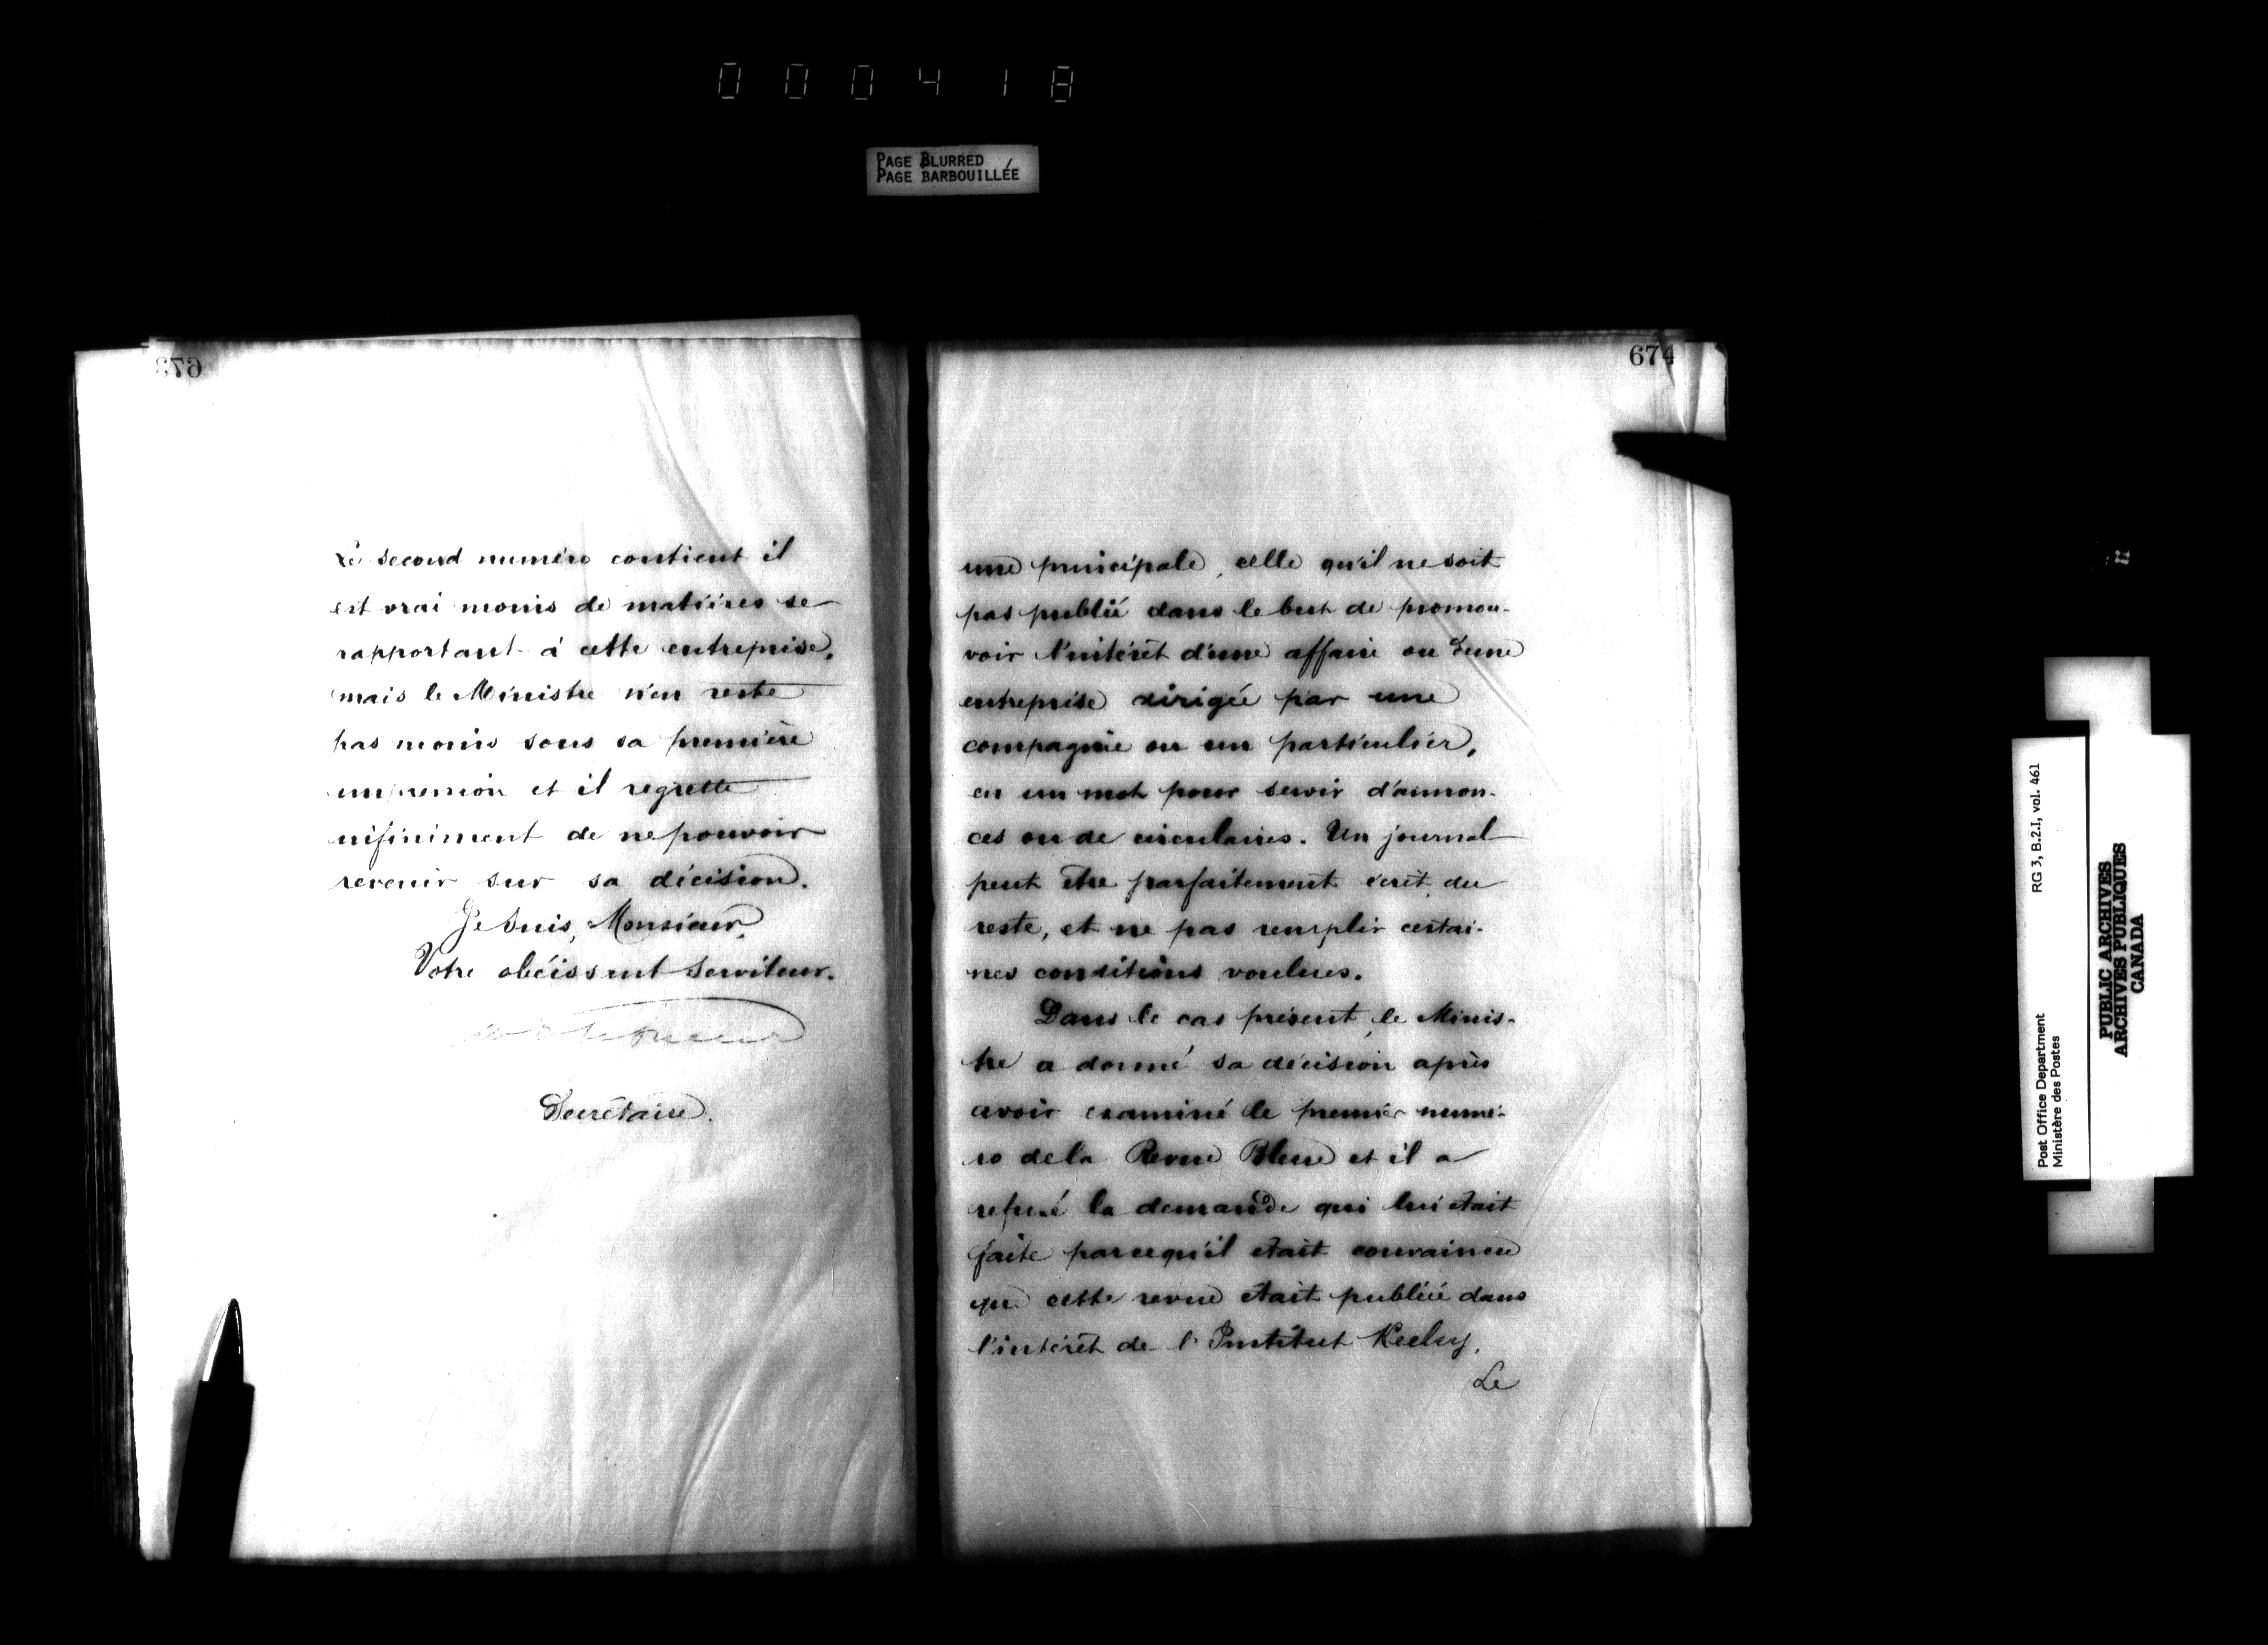 000418
PAGE BLURRED
PAGE BARBOUILLÉE
673
Le second numéro contient il
est vrai moins de matières se
rapportant à cette entreprise,
mais le Ministre n'en reste
pas moins sous sa première
impression et il regrette
infiniment de ne pouvoir
revenir sur sa décision.
Je suis, Monsieur,
Votre obéissant serviteur.
Secrétaire.
674
une principale, celle qu'il ne soit
pas publié dans le but de promou-
voir l'intérêt d'une affaire ou d'une
entreprise dirigée par une
compagnie ou un particulier,
en un mot pour servir d'annon-
ces ou de circulaires. Un journal
peut être parfaitement écrit, du
reste, et ne pas remplir certai-
nes conditions voulues.
Dans le cas présent, le Minis-
tre a donné sa décision après
avoir examiné le premier numé-
ro de la Revue Bleue et il a
refusé la demande qui lui était
faite parcequ'il était convaincu
que cette revue était publiée dans
l'intérêt de l'Institut Keeley.
Le
RG 3, B.2.I, vol. 461
Post Office Department
Ministère des Postes
PUBLIC ARCHIVES
ARCHIVES PUBLIQUES
CANADA